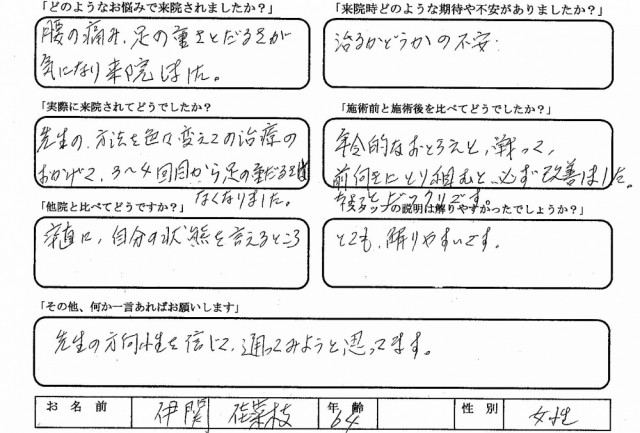 「どのようなお悩みで来院されましたか？」
腰の痛み、足の重さとだるさが
気になり来院しました。
「来院時どのような期待や不安がありましたか？」
治るかどうかの不安
「実際に来院されてどうでしたか？
先生の、方法を色々変えての治療の
おかげで、3〜4回目から足の重だるさは
なくなりました。
「施術前と施術後を比べてどうでしたか？」
年令的なおとろえと、戦って、
前向きにとり組むと、必ず改善しました。
ちょっとビックリです。
「他院と比べてどうですか？」
素直に、自分の状態を言えるところ
タッフの説明は解りやすかったでしょうか？」
とても、解りやすいです。
「その他、何か一言あればお願いします」
先生の方向性を信じて、通ってみようと思ってます。
お名前 伊関 佐葉枝 年齢 64 性別 女性